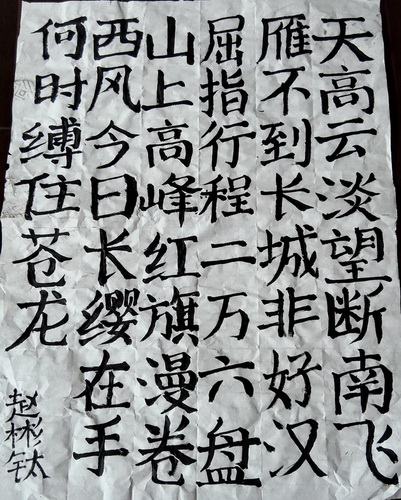 天高云淡望断南飞
雁不到长城非好汉
屈指行程二万六盘
山上高峰红旗漫卷
西风今日长缨在手
何时缚住苍龙
赵彬钛